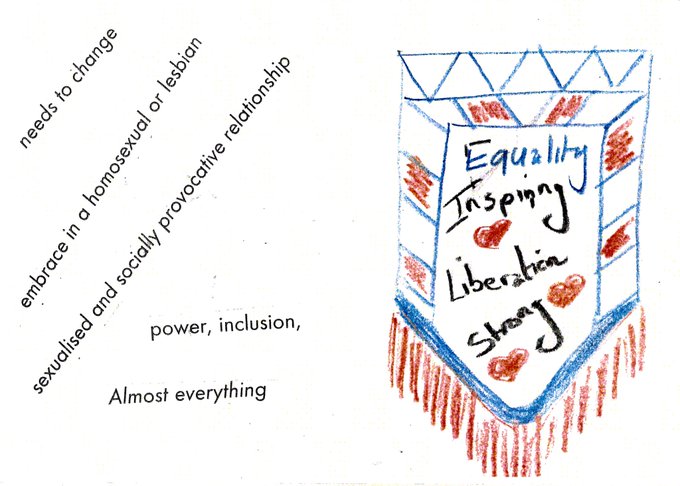 needs to change
embrace in a homosexual or lesbian
sexualised and socially provocative relationship
power, inclusion,
Almost everything
Equality
Inspiring
Liberation
Strong